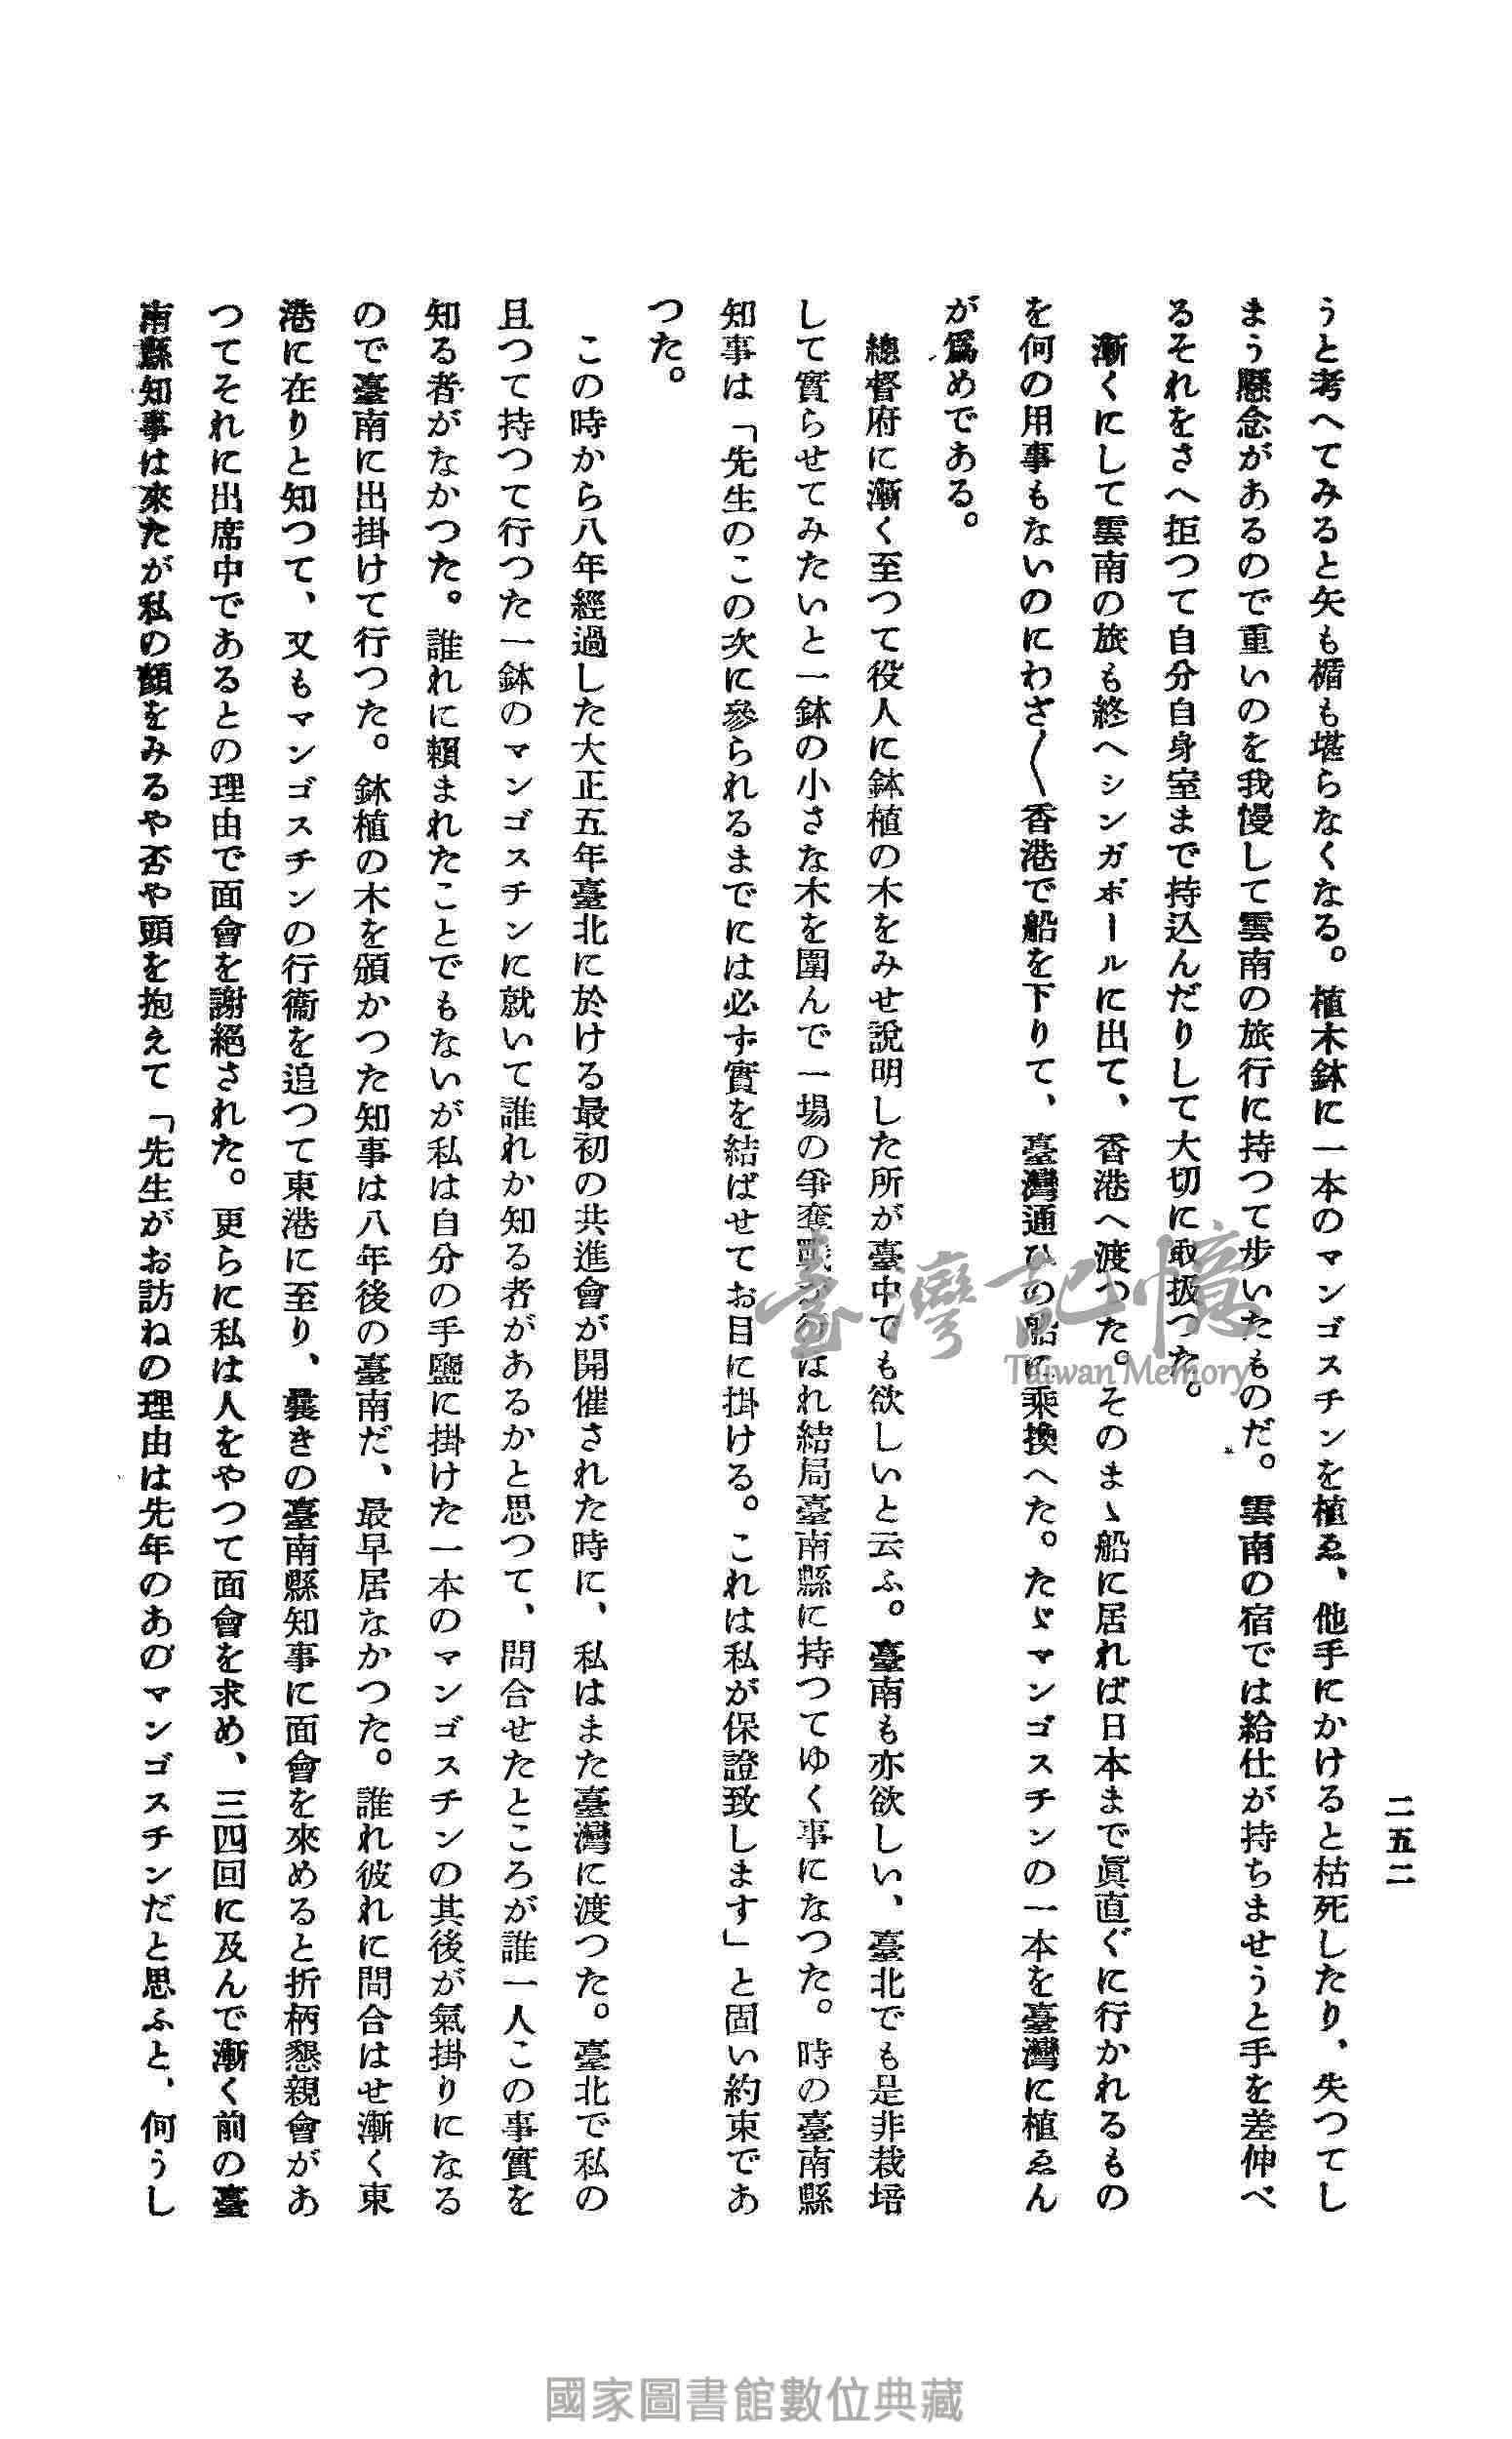 二五二
うと考へてみると矢も楯も堪らなくなる。植木鉢に一本のマンゴスチンを植ゑ、他手にかけると枯死したり、失つてし
まう懸念があるので重いのを我慢して雲南の旅行に持つて歩いたものだ。雲南の宿では給仕が持ちませうと手を差伸べ
るそれをさへ拒つて自分自身室まで持込んだりして大切に取扱つた。
漸くにして雲南の旅も終へシンガポールに出て、香港へ渡つた。そのまゝ船に居れば日本まで眞直ぐに行かれるもの
を何の用事もないのにわざ〱香港で船を下りて、臺灣通ひの船に乘換へた。たゞマンゴスチンの一本を臺灣に植ゑん
が爲めである。
總督府に漸く至つて役人に鉢植の木をみせ説明した所が臺中でも欲しいと云ふ。臺南も亦欲しい、臺北でも是非栽培
して實らせてみたいと一鉢の小さな木を圍んで一場の爭奪戰が行はれ結局臺南縣に持つてゆく事になつた。時の臺南縣
知事は「先生のこの次に參られるまでには必ず實を結ばせてお目に掛ける。これは私が保證致します」と固い約束であ
つた。
この時から八年經過した大正五年臺北に於ける最初の共進會が開催された時に、私はまた臺灣に渡つた。臺北で私の
且つて持つて行つた一鉢のマンゴスチンに就いて誰れか知る者があるかと思つて、問合せたところが誰一人この事實を
知る者がなかつた。誰れに賴まれたことでもないが私は自分の手鹽に掛けた一本のマンゴスチンの其後が氣掛りになる
ので臺南に出掛けて行つた。鉢植の木を頒かつた知事は八年後の臺南だ、最早居なかつた。誰れ彼れに問合はせ漸く東
港に在りと知つて、又もマンゴスチンの行衞を追つて東港に至り、曩きの臺南縣知事に面會を來めると折柄懇親會があ
つてそれに出席中であるとの理由で面會を謝絕された。更らに私は人をやつて面會を求め、三四回に及んで漸く前の臺
南縣知事は來たが私の顏をみるや否や頭を抱えて「先生がお訪ねの理由は先年のあのマンゴスチンだと思ふと、何うし
臺灣記憶
Taiwan Memory
國家圖書館數位典藏